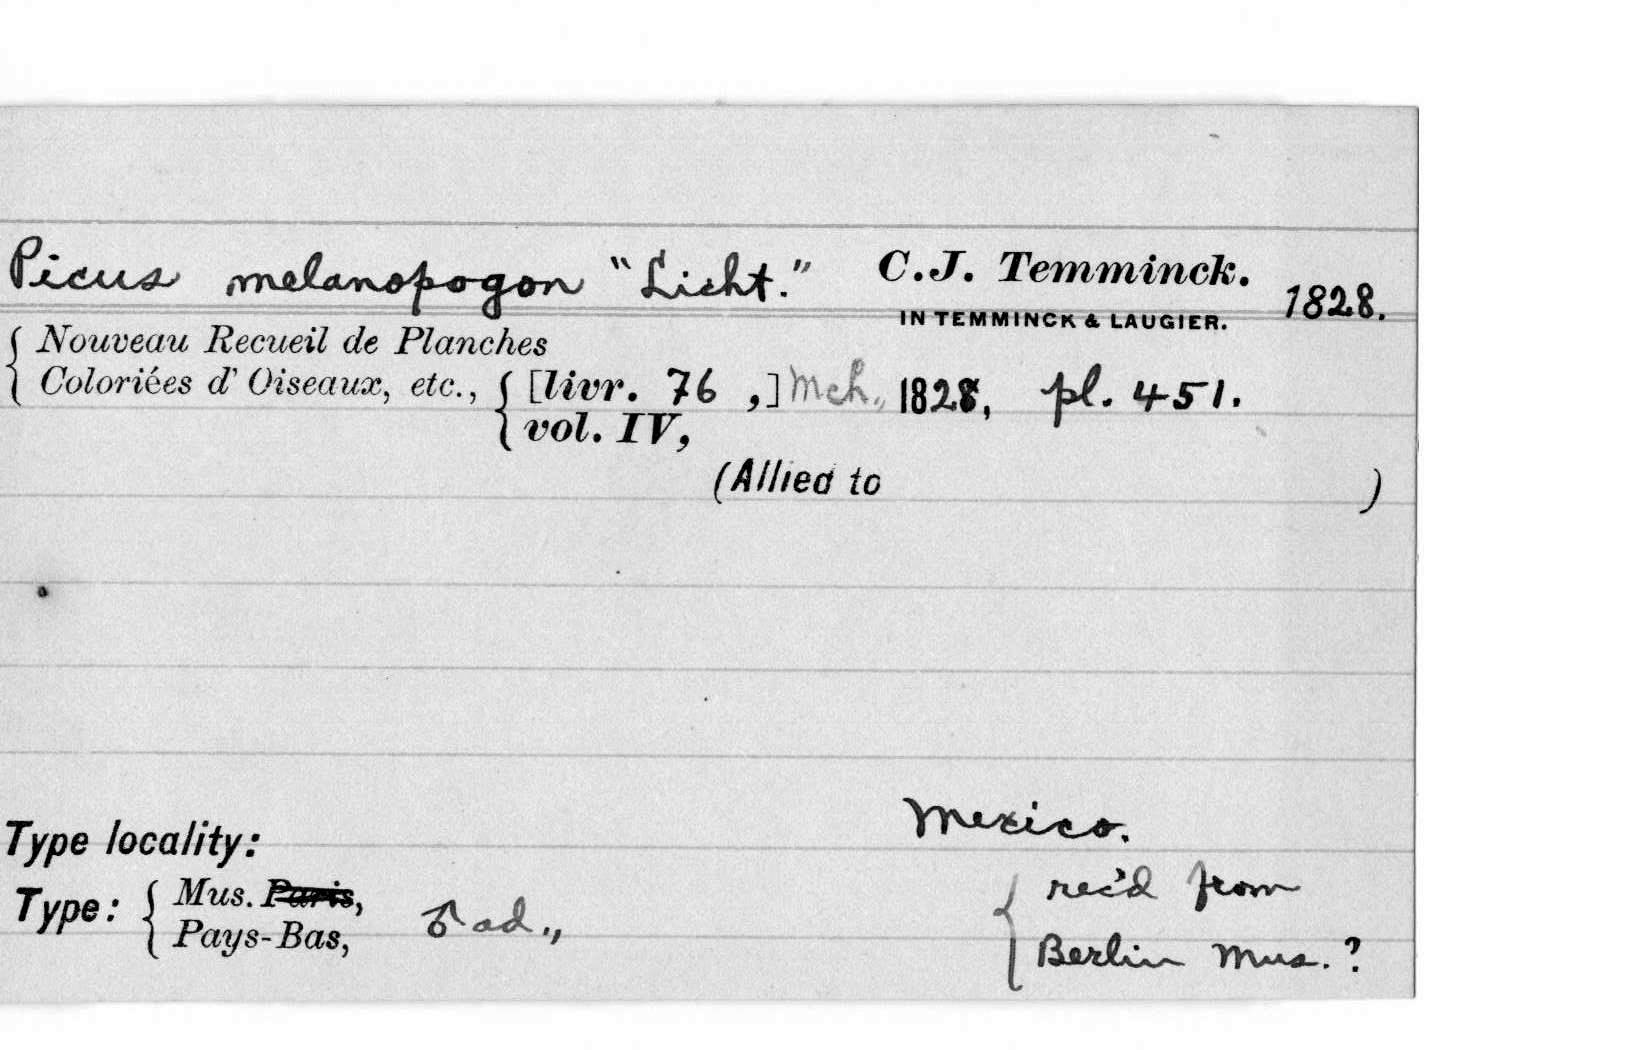 Picus melanopogon "Licht." C.J. Temminck. 1828.
IN TEMMINCK & LAUGIER.
Nouveau Recueil de Planches
Coloriées d'Oiseaux, etc., [livr. 76 ,] Mch., 1828, pl. 451.
vol. IV,
(Allied to )
Mexico.
Type locality:
Type: Mus. Paris, ♂ ad., rec'd from
Pays-Bas, Berlin Mus.?